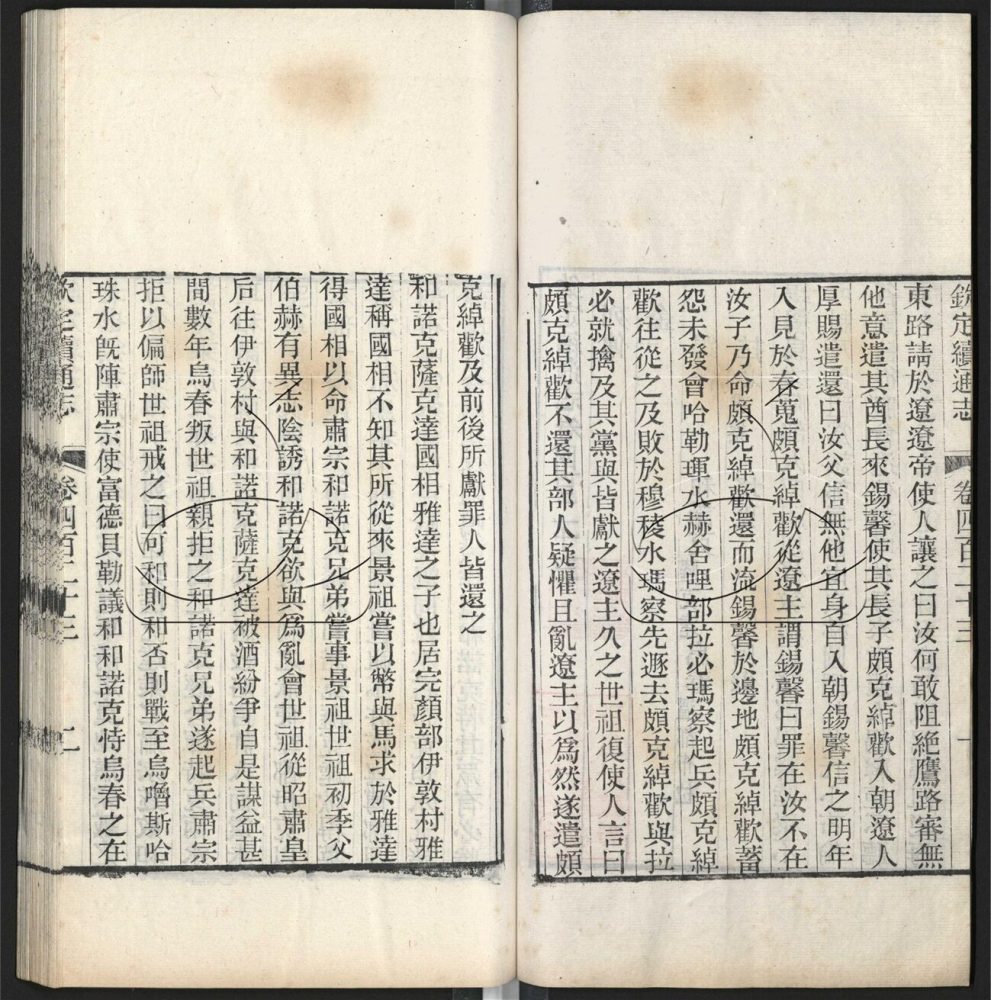 欽定續通志 卷四百二十三 一
東路請於遼遼帝使人讓之曰汝何敢阻絕鷹路審無
他意遣其酋長來錫馨使其長子頗克綽歡入朝遼人
厚賜遣還曰汝父信無他宜身自入朝錫馨信之明年
入見於春蒐頗克綽歡從遼主謂錫馨曰罪在汝不在
汝子乃命頗克綽歡還而流錫馨於邊地頗克綽歡蓄
怨未發會哈勒琿水赫舍哩部拉必瑪察起兵頗克綽
歡往從之及敗於穆稜水瑪察先遯去頗克綽歡與拉
必就擒及其黨與皆獻之遼主久之世祖復使人言曰
頗克綽歡不還其部人疑懼且亂遼主以為然遂遣頗
克綽歡及前後所獻罪人皆還之
和諾克薩克達國相雅達之子也居完顏部伊敦村雅
達稱國相不知其所從來景祖嘗以幣與馬求於雅達
得國相以命肅宗和諾克兄弟嘗事景祖世祖初季父
伯赫有異志陰誘和諾克欲與為亂會世祖從昭肅皇
后往伊敦村與和諾克薩克達被酒紛爭自是謀益甚
間數年烏春叛世祖親拒之和諾克兄弟遂起兵肅宗
拒以偏師世祖戒之曰可和則和否則戰至烏嚕斯哈
珠水既陣肅宗使富德貝勒議和和諾克恃烏春之在
欽定續通志 卷四百二十三 二